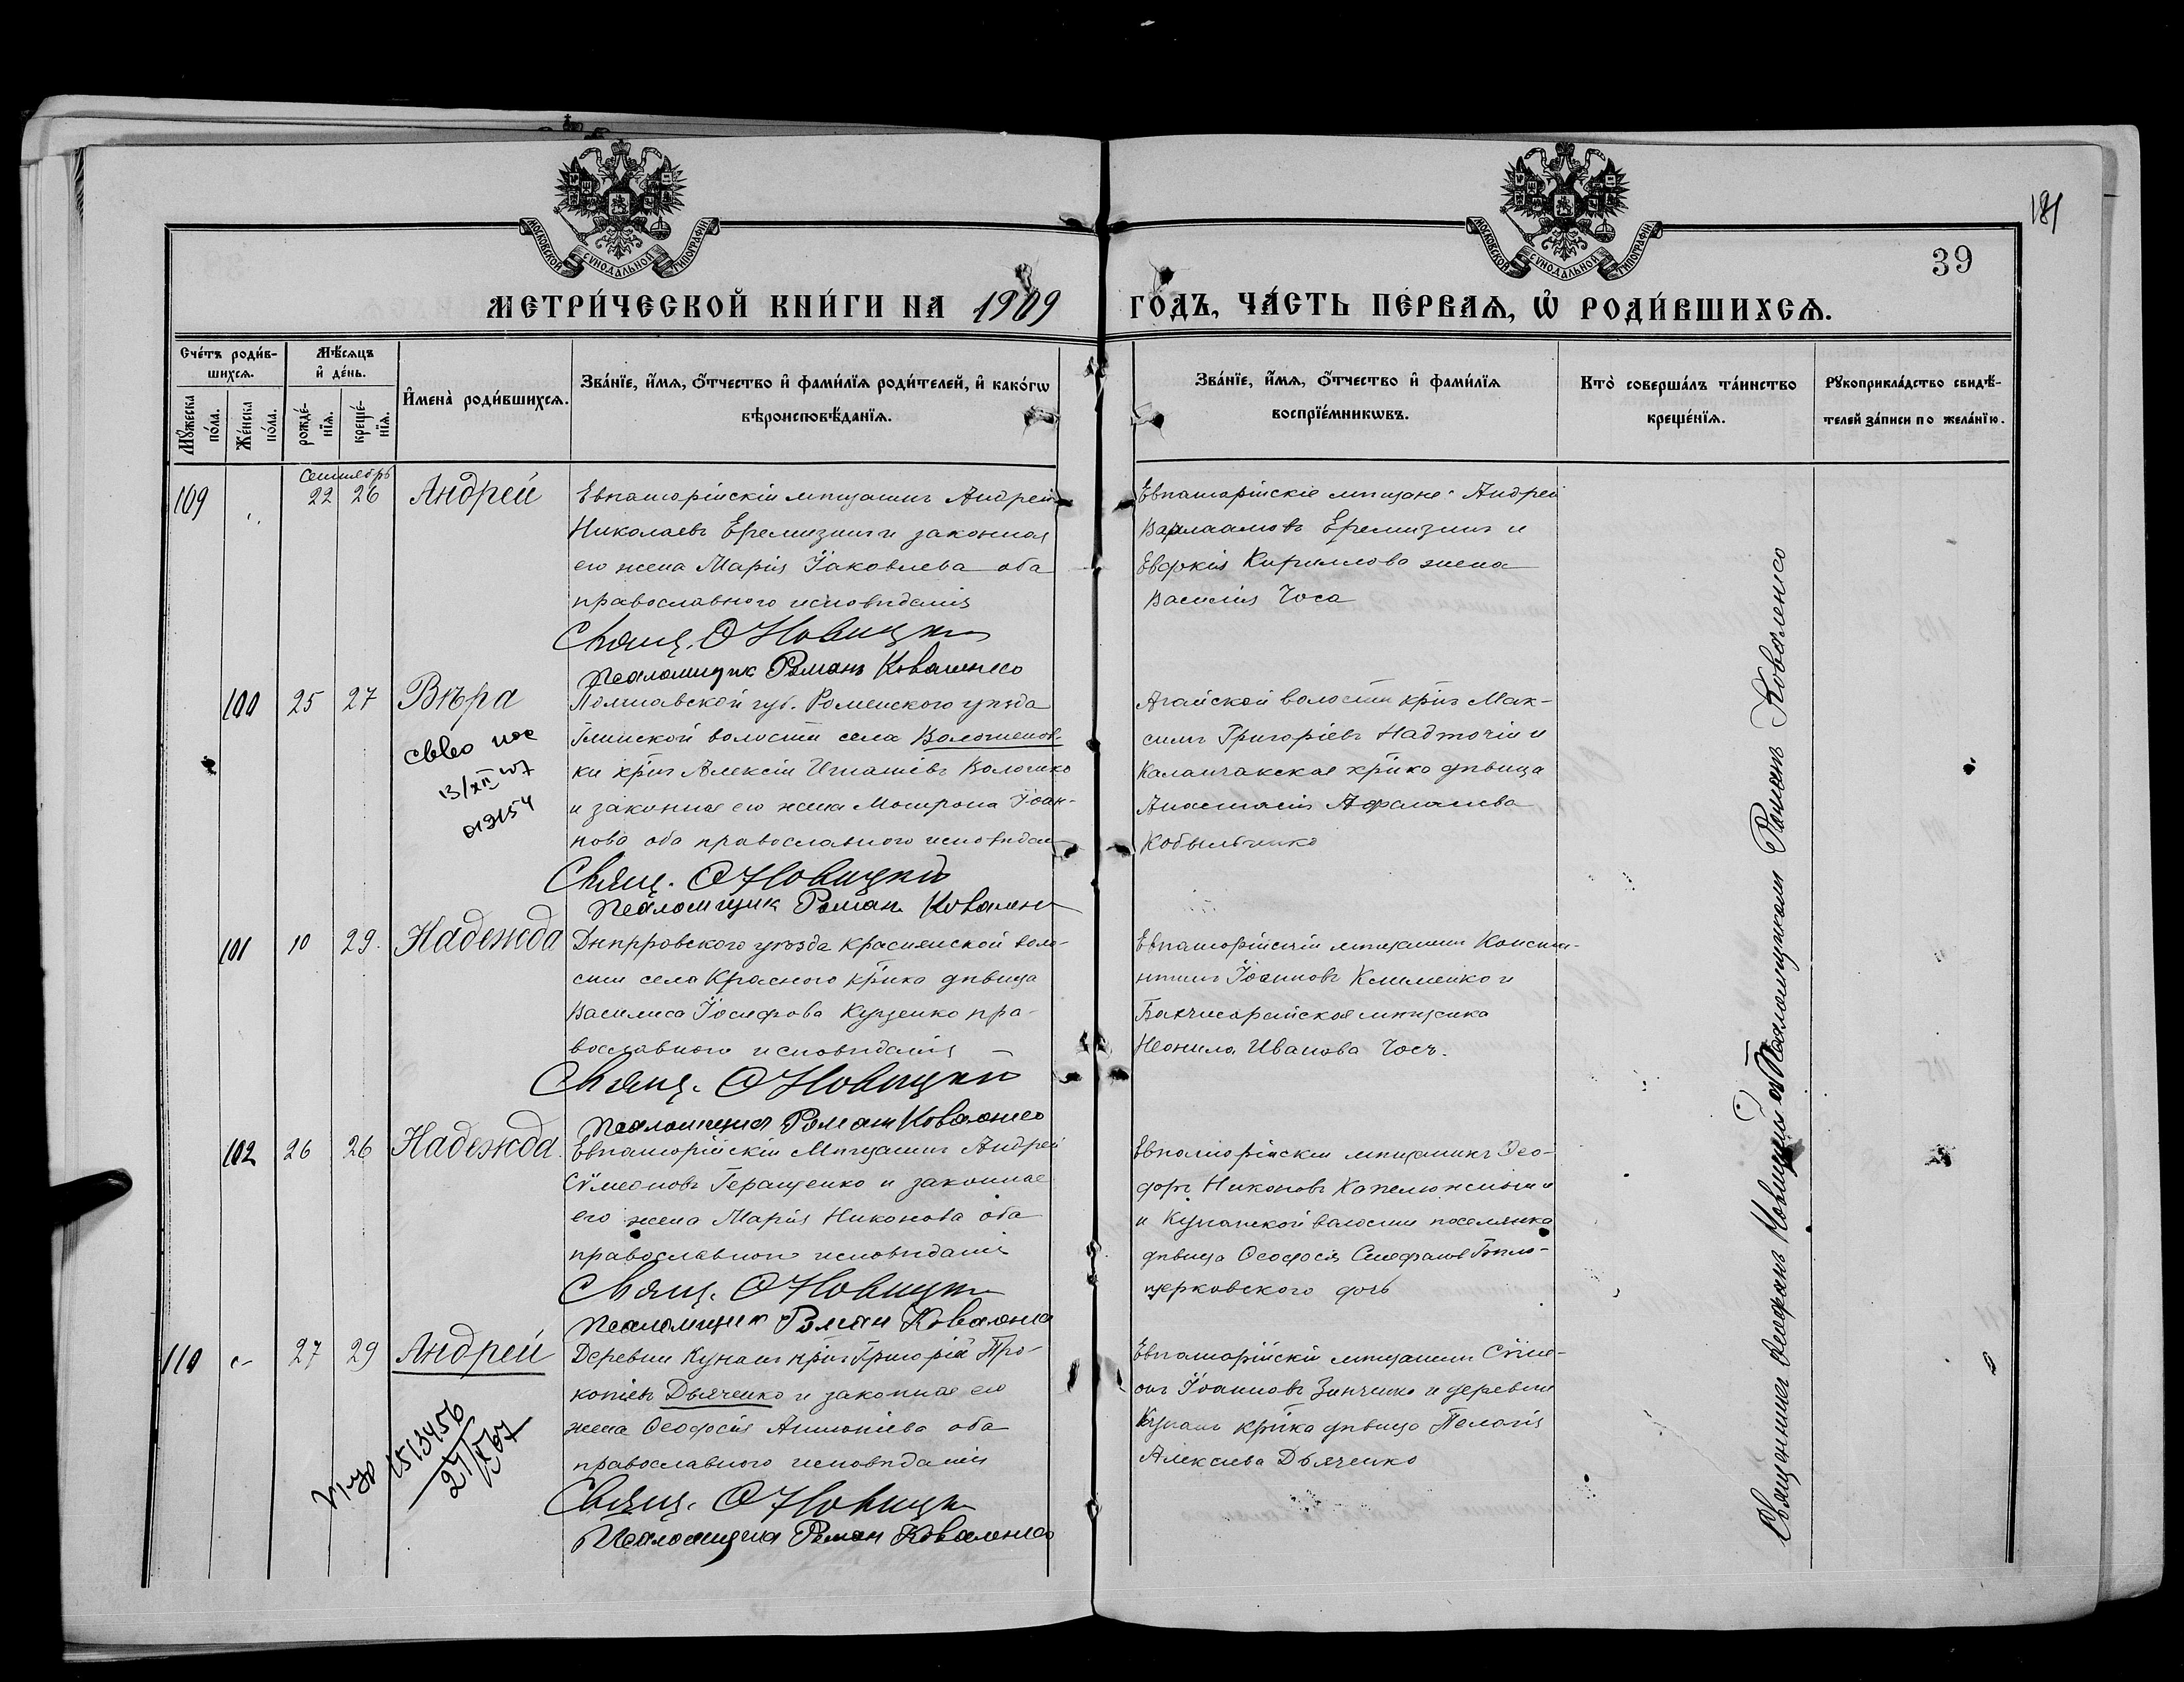 МОСКОВСКОЙ СѴНОДАЛЬНОЙ ТИПОГРАФІИ
МОСКОВСКОЙ СѴНОДАЛЬНОЙ ТИПОГРАФІИ
181
39
МЕТРИ́ЧЕСКОЙ КНИ́ГИ НА 1909
ГО́ДЪ, ЧА́СТЬ ПЕ́РВАѦ, Ѡ РОДИ́ВШИХСѦ.
Сче́тъ роди́в-
шихсѧ.
Му́жеска по́ла.
Же́нска по́ла.
Мѣ́сѧцъ
и҆ де́нь.
рожде́-
нїѧ.
креще́-
нїѧ.
И҆мена̀ роди́вшихсѧ.
Зва́нїе, и҆́мѧ, ѻ҆́тчество и҆ фами́лїѧ роди́телей, и҆ како́гѡ
вѣроисповѣ́данїѧ.
Зва́нїе, и҆́мѧ, ѻ҆́тчество и҆ фами́лїѧ
воспрїе́мникѡвъ.
Кто̀ соверша́лъ та́инство
креще́нїѧ.
Рꙋкоприкла́дство свидѣ́-
телей за́писи по жела́нїю.
Сентябрь
109 22 26 Андрей
Евпаторійскій мѣщанинъ Андрей
Николаевъ Еремизинъ и законная
его жена Марія Іаковлева оба
православного исповѣданія
Свящ. Ѳ Новицкій
Псаломщик Романъ Коваленко
Евпаторійскіе мѣщане: Андрей
Варлаамовъ Еремизинъ и
Евдокія Кириллова жена
Василія Чоса
100 25 27 Вѣра
Полтавской губ. Роменского уѣзда
Глинской волости села
ки кр-нъ Алексій Игнатіевъ
и законная его жена Матрона Іоан-
нова оба православного исповѣдан
Свящ. Ѳ Новицкій
Псаломщик Роман Коваленко
13/XII
Агайской волости кр-нъ Мак-
симъ Григоріевъ Надточій и
Каланчакская кр-нка дѣвица
Анастасія
101 10 29. Надежда
Днѣпровского уѣзда Краснянской воло-
сти села Красного кр-нка дѣвица
Василиса Іосифова Куценко пра-
вославного исповѣданія
Свящ. Ѳ Новицкій
Псаломщик Роман Коваленко
Евпаторійскій мѣщанин Констан-
тинъ Іоанновъ Клименко и
Бахчисарайская мѣщанка
Неонила Иванова Чосъ.
102 26 26 Надежда.
Евпаторійскій Мѣщанинъ Андрей
Сѵмеоновъ Геращенко и законная
его жена Марія Никонова оба
православного исповѣданія
Свящ. Ѳ Новицкій
Псаломщик Роман Коваленко
Евпаторійскій мѣщанинъ Ѳео-
доръ Никоновъ
и Кунанской волости поселянка
дѣвица Ѳеодосія Стефанов Бѣло-
церковского дочь
110 27 29 Андрей
Деревни Кунанъ кр-нъ Григорій Про-
копіевъ Дьяченко и законная его
жена Ѳеодосія Антоніева оба
православного исповѣданія
Свящ. Ѳ Новицкій
Псаломщик Роман Коваленко
1513456
Евпаторійскій мѣщанин Сѵме-
онъ Іоанновъ Зинченко и деревни
Кунанъ кр-нка дѣвица Пелагія
Алексіева Дьяченко
Священникъ Ѳеофанъ Новицкій съ Псаломщикомъ Романъ Коваленко